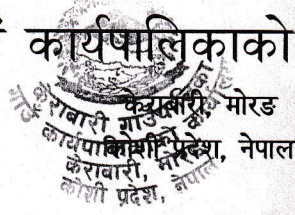 कार्यपालिकाको
केराबारी, मोरङ
कोशी प्रदेश, नेपाल
केराबारी गाउँपालिका
गाउँ कार्यपालिकाको कार्यालय
केराबारी, मोरङ
कोशी प्रदेश, नेपाल